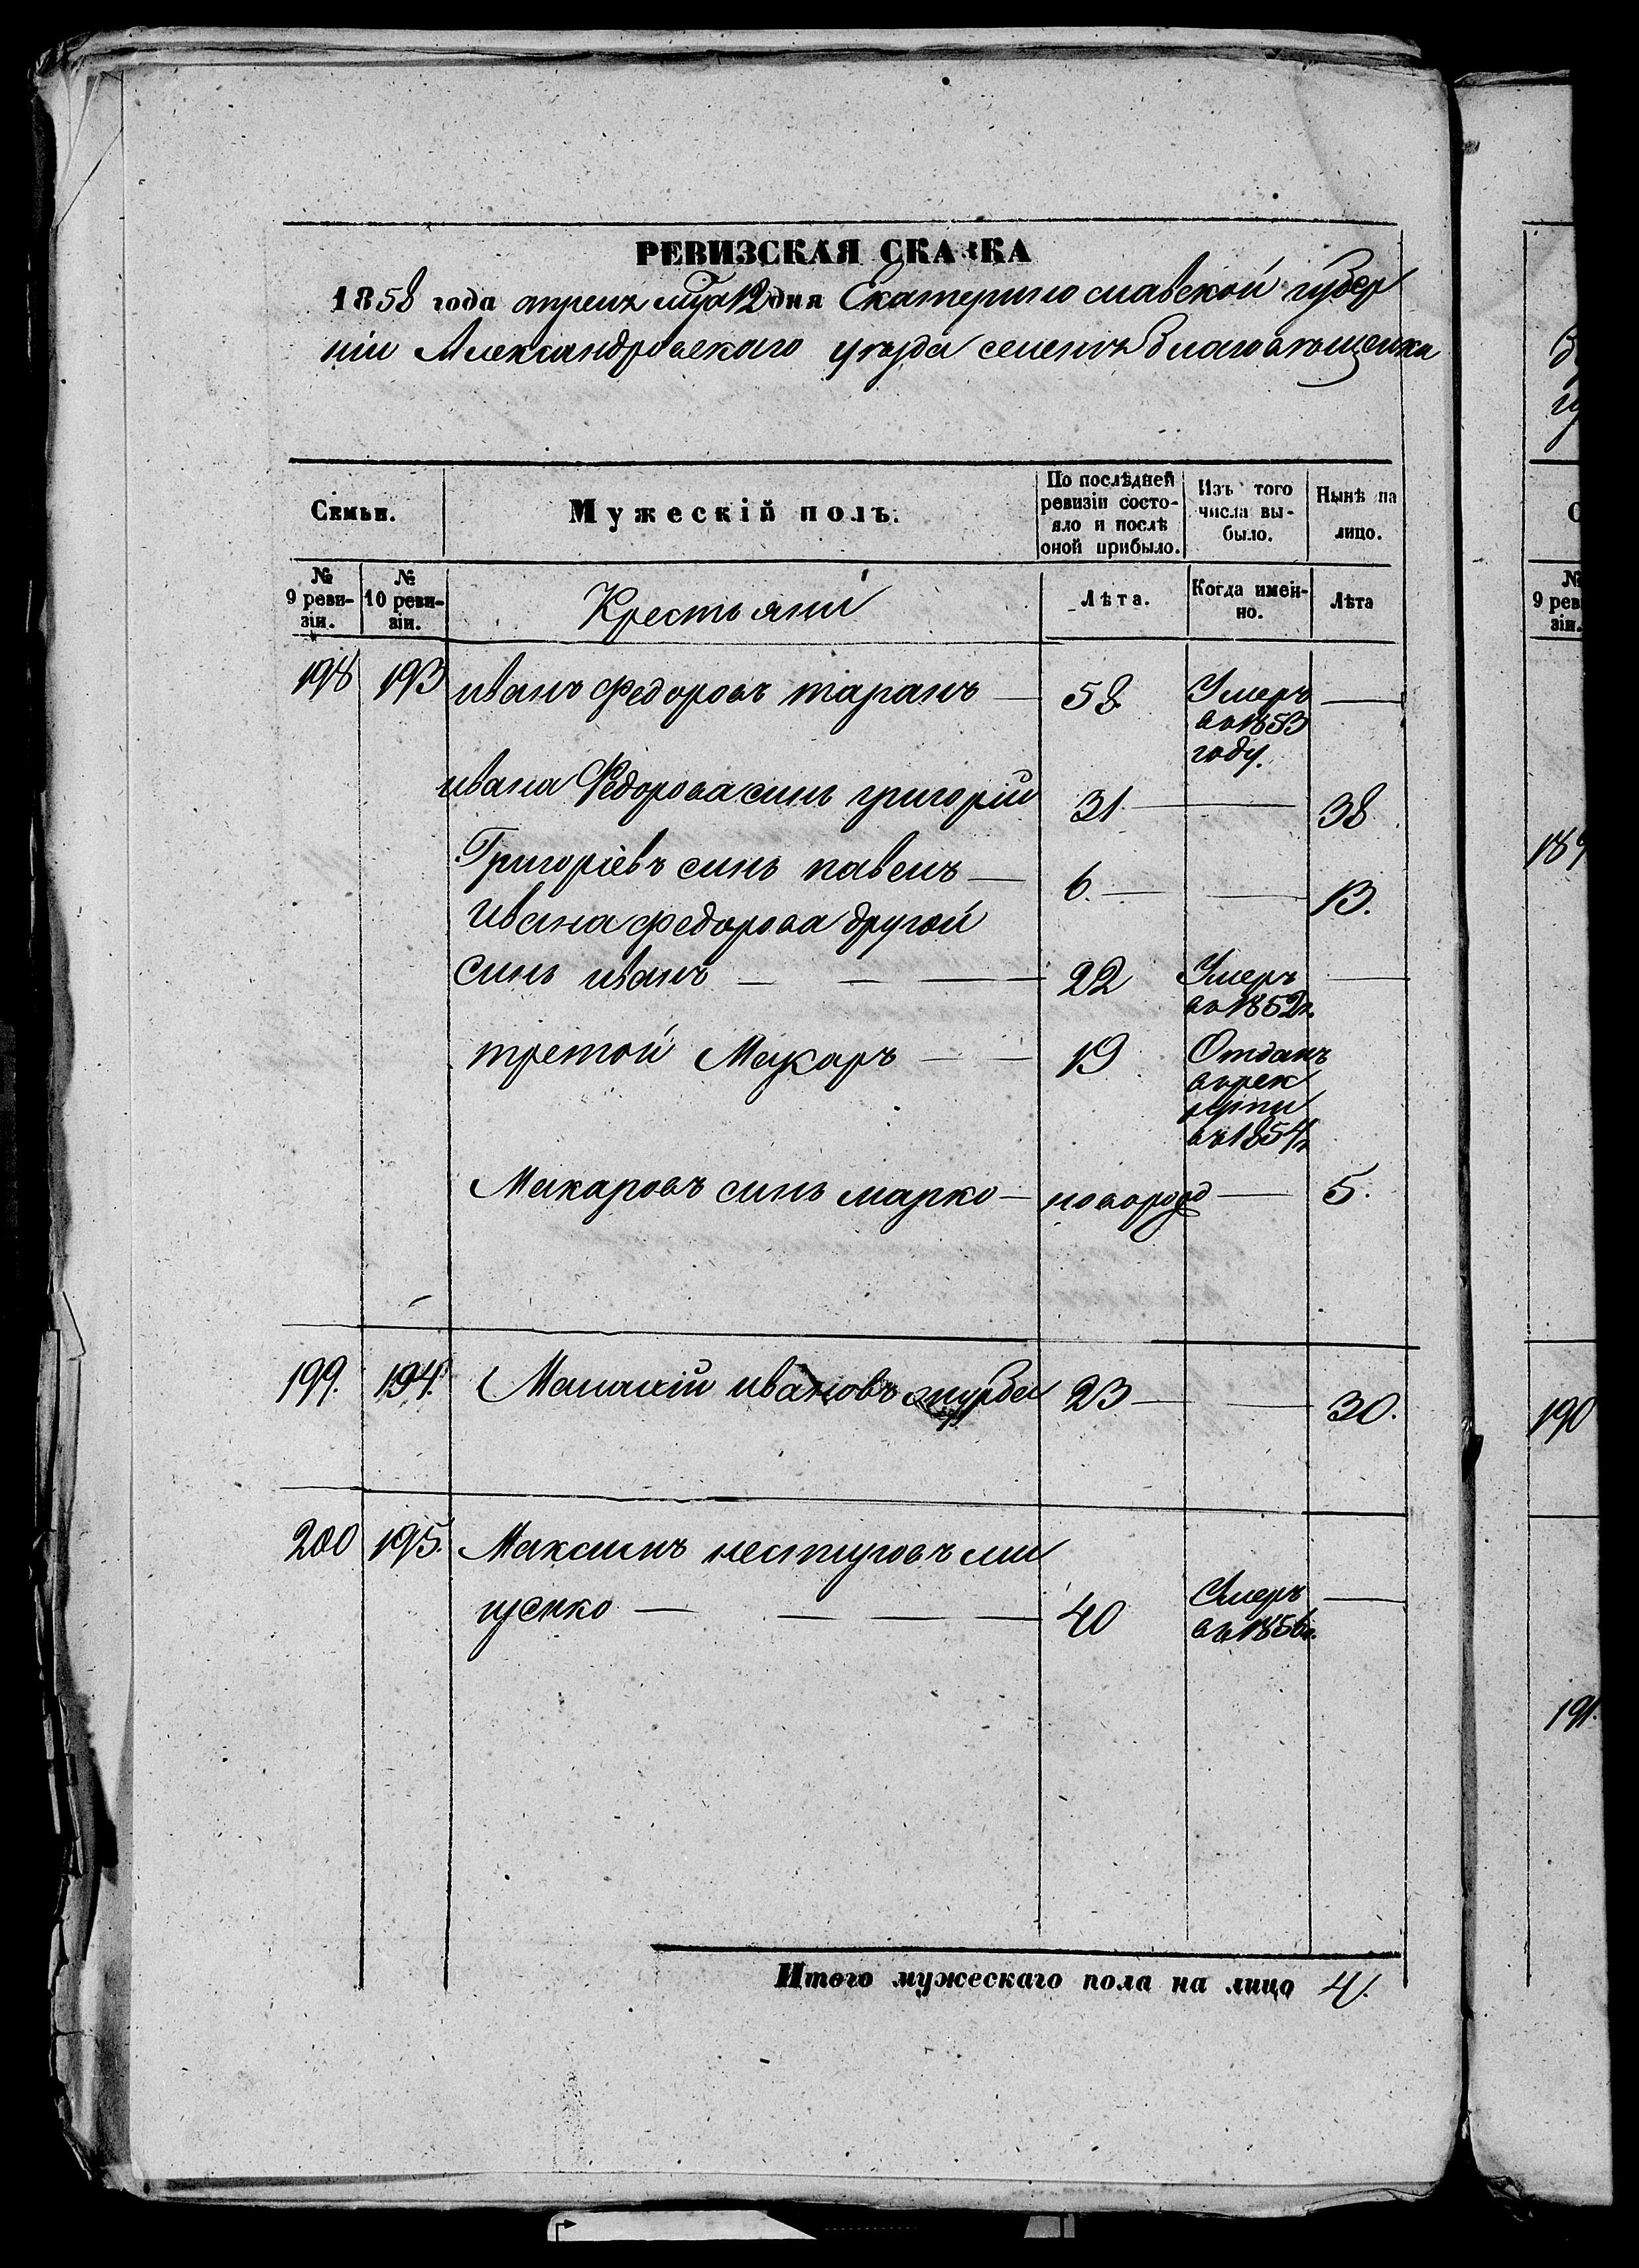 РЕВИЗСКАЯ СКАЗКА
1858 года апреля мца 12 дня Екатеринославской губер
ніи Александровскаго уезда селенъ Благовещенка
Семьи.
Мужескій полъ.
По послѣдней ревизіи состо-
яло и послѣ оной прибыло.
Изъ того числа вы-
было.
Нынѣ на лицо.
№ 9 реви-
зіи.
№ 10 реви-
зіи.
Крестьяни
Лѣта.
Когда имен-
но.
Лѣта
198 193 иванъ Федоровъ таранъ — 58. Умеръ —
во 1853
году.
ивана Федорова синъ григорій 31 — — 38
Григоріевъ синъ павелъ — 6. — — 13.
Ивана федорова другой
синъ иванъ — — — 22 Умеръ —
во 1852г.
третой Макаръ — — 19 Отданъ
ворек
рути
въ 1854г
Макаровъ синъ марко — новород — 5.
199. 194. ивановъ 23 — — 30.
200 195. Максимъ
щенко — — — 40 Умеръ —
въ 1856г.
Итого мужескаго пола на лицо 4.
189
190
191.
№
9 рев
зіи.